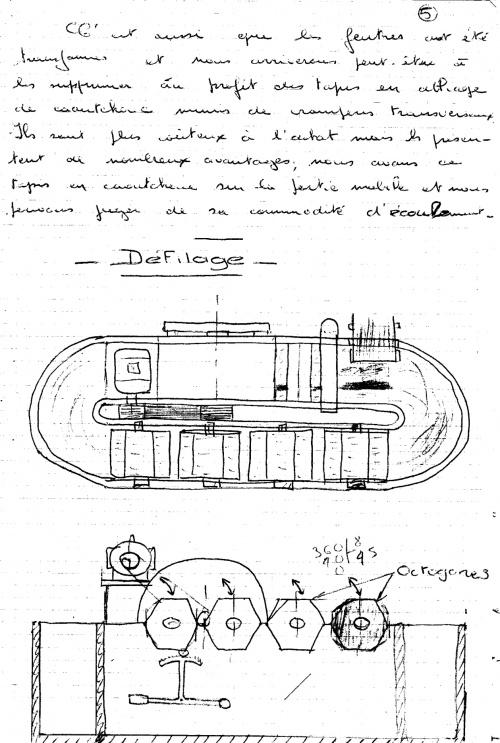 5
CG' est aussi que les feutres ont été
transformés et nous arriverons peut-être à
les supprimer au profit des tapis en
de caoutchouc munis de crampons transversaux
Ils sont plus coûteux à l'achat mais ils présen-
tent de nombreux avantages, nous avons ce
tapis en caoutchouc sur la partie mobile et nous
pouvons juger de sa commodité d'écoulement.
— Défilage —
360 8
40 45
0
Octogones